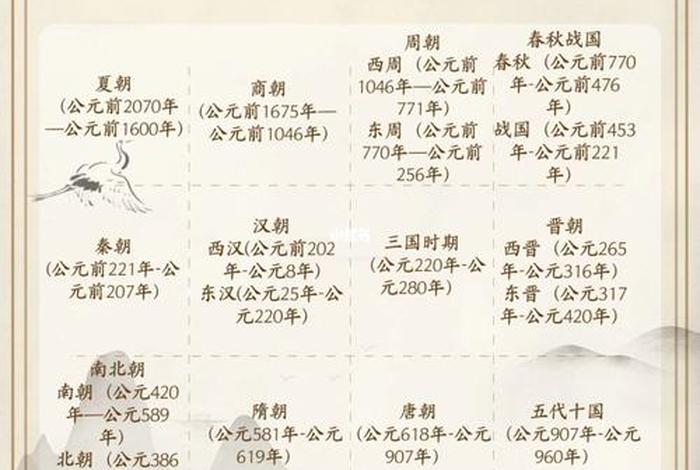 夏朝
（公元前2070年
—公元前1600年）
商朝
（公元前1675年—
公元前1046年）
周朝
西周（公元前
1046年—公元前
771年）
东周（公元前
770年—公元前
256年）
春秋战国
春秋（公元前770
年-公元前476
年）
战国（公元前453
年-公元前221
年）
秦朝
（公元前221年-公
元前207年）
汉朝
西汉(公元前202
年-公元8年）
东汉(公元25年-公
元220年）
三国时期
（公元220年-公元
280年）
晋朝
西晋（公元265
年-公元316年）
东晋（公元317
年-公元420年）
南北朝
南朝（公元420
年—公元589
年）
北朝（公元386
隋朝
（公元581年-公元
619年）
唐朝
（公元618年-公元
907年）
五代十国
（公元907年-公元
960年）